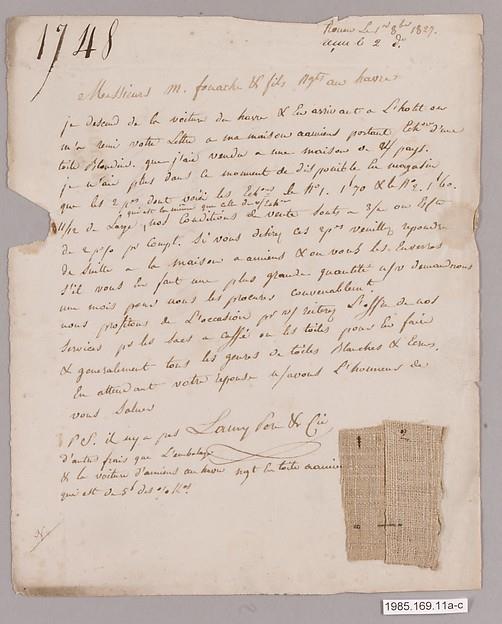 1748
Rouen Le 1er 8bre 1827.
reçu le 2 do
Messieurs M. fouache & fils Ngts au havre
je descend de la voiture du havre & En arrivant a L'hotel on
m'a remi votre Lettre a ma maison amiens portant Echon d'une
toile Blondine que j'ai vendu a une maison de pays.
je n'ai plus dans ce moment de disponible En magasin
que les 2 pces dont voici les Echons Le No 1. 1f70 & le No 2. 1f60.
qui est la même que celle de
11/12 de Large, nos Conditions de vente sont a 3/m ou
de 2 p% pr Compt. Si vous desirez ces 2 pces veuillez repondre
de Suite a la maison a amiens & on vous les Enverra
s'il vous En faut une plus grande quantité demandons
un mois pour vous les procurer convenablement
nous profitons de L'occasion pr reiterer L'offre de nos
Services pr les Sacs a caffé ou les toiles pour En faire
& generalement tous les genres de toiles Blanches & Ecrues.
En attendant votre reponse n/avons L'honneur de
vous Saluer
P.S. il n'y a pas
d'autre frais que L'embalage
& la voiture d'amiens au havre
qui est de 5f des % Kos
Ngt En toile amiens
1
2
1985.169.11a-c